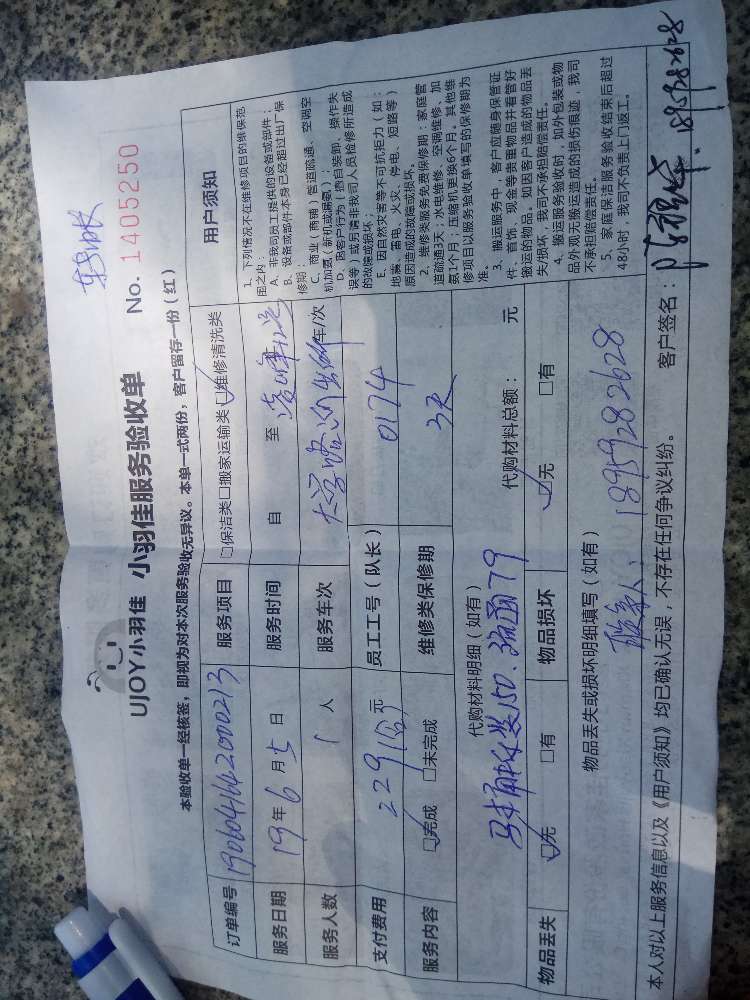 UJOY小羽佳 小羽佳服务验收单 No. 1405250
本验收单一经核签，即视为对本次服务验收无异议。本单一式两份，客户留存一份（红）
订单编号 1906041642000213 服务项目 □保洁类□搬家运输类☑维修清洗类
服务日期 19年6月5日 服务时间 自 至
服务人数 1人 服务车次 车/次
支付费用 229 元 员工工号（队长） 0174
服务内容 ☑完成 □未完成 维修类保修期 3天
代购材料明细（如有） 代购材料总额： 元
马桶 150、疏通79
物品丢失 ☑无 □有 物品损坏 ☑无 □有
物品丢失或损坏明细填写（如有）
联系人：18959282628
本人对以上服务信息以及《用户须知》均已确认无误，不存在任何争议纠纷。 客户签名： 18959282628
用户须知
1、下列情况不在维修项目的维保范
围之内：
A、非我司员工提供的设备或部件；
B、设备或部件本身已经超过出厂保
修期；
C、商业（商铺）管道疏通、空调空
机加氨（新机或漏氨）；
D、因客户行为（擅自装卸、操作失
误等）或另请非我司人员检修所造成
的改造或损坏；
E、因自然灾害等不可抗拒力（如：
地震、雷电、火灾、停电、短路等）
原因造成的故障或损坏。
2、维修类服务免费保修期：家庭管
道疏通3天；水电维修、空调维修、加
氨1个月；压缩机更换6个月。其他维
修项目以服务验收单填写的保修期为
准。
3、搬运服务中，客户应随身保管证
件、首饰、现金等贵重物品并看管好
搬运的物品。如因客户造成的物品丢
失/损坏，我司不承担赔偿责任。
4、搬运服务验收时，如外包装或物
品外观无搬运造成的损伤痕迹，我司
不承担赔偿责任。
5、家庭保洁服务验收结束后超过
48小时，我司不负责上门返工。